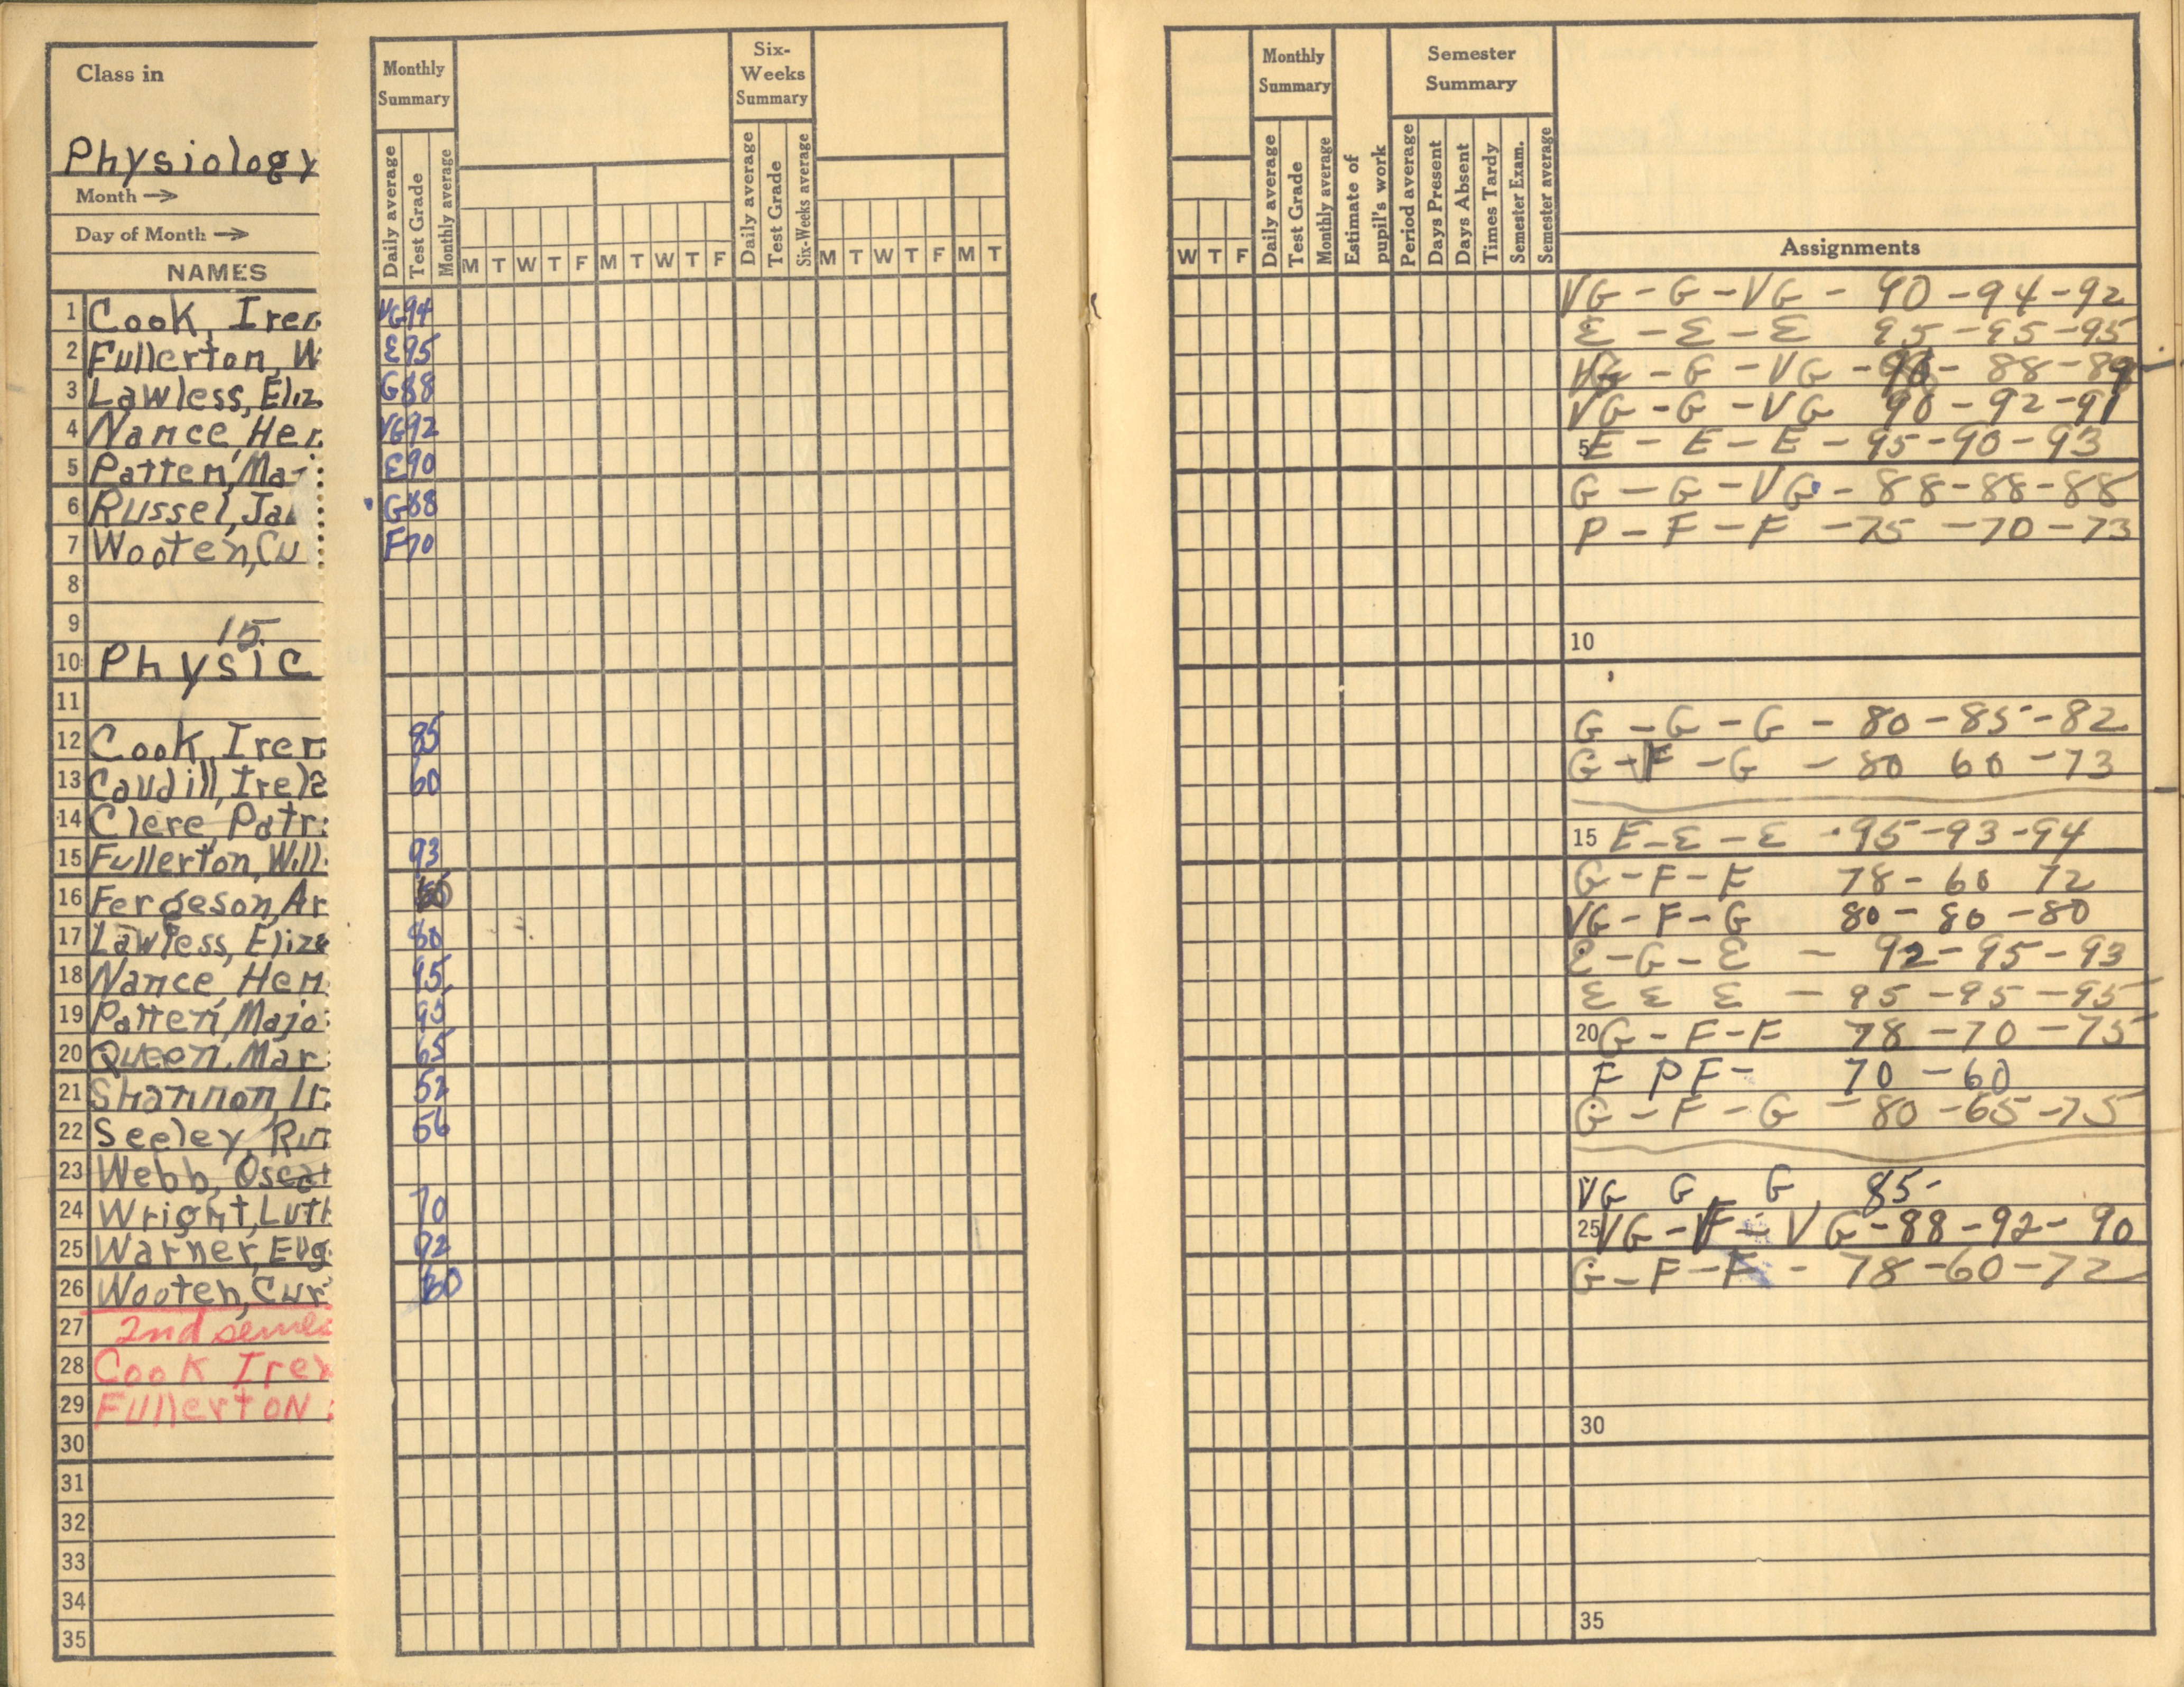 Class in
Physiology
Month →
Day of Month →
NAMES
1 Cook, Iren
2 Fullerton, W
3 Lawless, Eliz
4 Nance, Her
5 Patten, Maj
6 Russel, Ja
7 Wooten, Cu
8
9 15
10 Physic
11
12 Cook, Iren
13 Caudill, Irela
14 Clere, Patr
15 Fullerton, Will
16 Fergeson, Ar
17 Lawless, Eliza
18 Nance, Hen
19 Patten, Majo
20 Queen, Mar
21 Shannon, Ir
22 Seeley, Ru
23 Webb, Oscar
24 Wright, Luth
25 Warner, Eug
26 Wooten, Cur
27 2nd semes
28 Cook Iren
29 Fullerton
30
31
32
33
34
35
Monthly Summary
Six-Weeks Summary
Daily average
Test Grade
Monthly average
Daily average
Test Grade
Six-Weeks average
M T W T F M T W T F
M T W T F M T
VG 94
E 95
G 88
VG 92
E 90
G 88
F 70
85
60
93
80
95
95
65
52
56
70
92
60
Monthly Summary
Semester Summary
Daily average
Test Grade
Monthly average
Estimate of pupil's work
Period average
Days Present
Days Absent
Times Tardy
Semester Exam.
Semester average
W T F
Assignments
VG - G - VG - 90 - 94 - 92
E - E - E 95 - 95 - 95
VG - G - VG - 90 - 88 - 89
VG - G - VG 90 - 92 - 91
5 E - E - E - 95 - 90 - 93
G - G - VG - 88 - 88 - 88
P - F - F - 75 - 70 - 73
10
G - G - G - 80 - 85 - 82
G - F - G - 80 60 - 73
15 E - E - E - 95 - 93 - 94
G - F - F 78 - 60 72
VG - F - G 80 - 80 - 80
E - G - E - 92 - 95 - 93
E E E - 95 - 95 - 95
20 G - F - F 78 - 70 - 75
F P F - 70 - 60
G - F - G - 80 - 65 - 75
VG G G 85 -
25 VG - F - VG - 88 - 92 - 90
G - F - F - 78 - 60 - 72
30
35